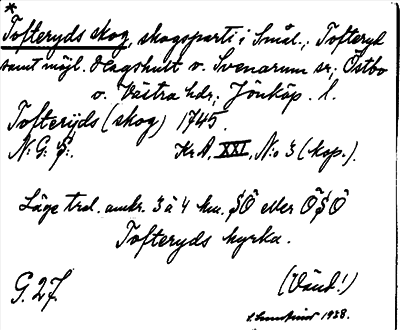 *
Tofteryds skog, skogsparti i Smål.; Tofteryd
samt möjl. Hagshult o. Svenarum sr; Östbo
o. Västra hdr; Jönköp. l.
Tofterÿds (skog) 1745.
N: G: S:. Kr A. XXI, N:o 3 (kop.).
Läge trol. omkr. 3 à 4 km. SÖ eller ÖSÖ
Tofteryds kyrka.
G. 27 (Vänd!)
1928.